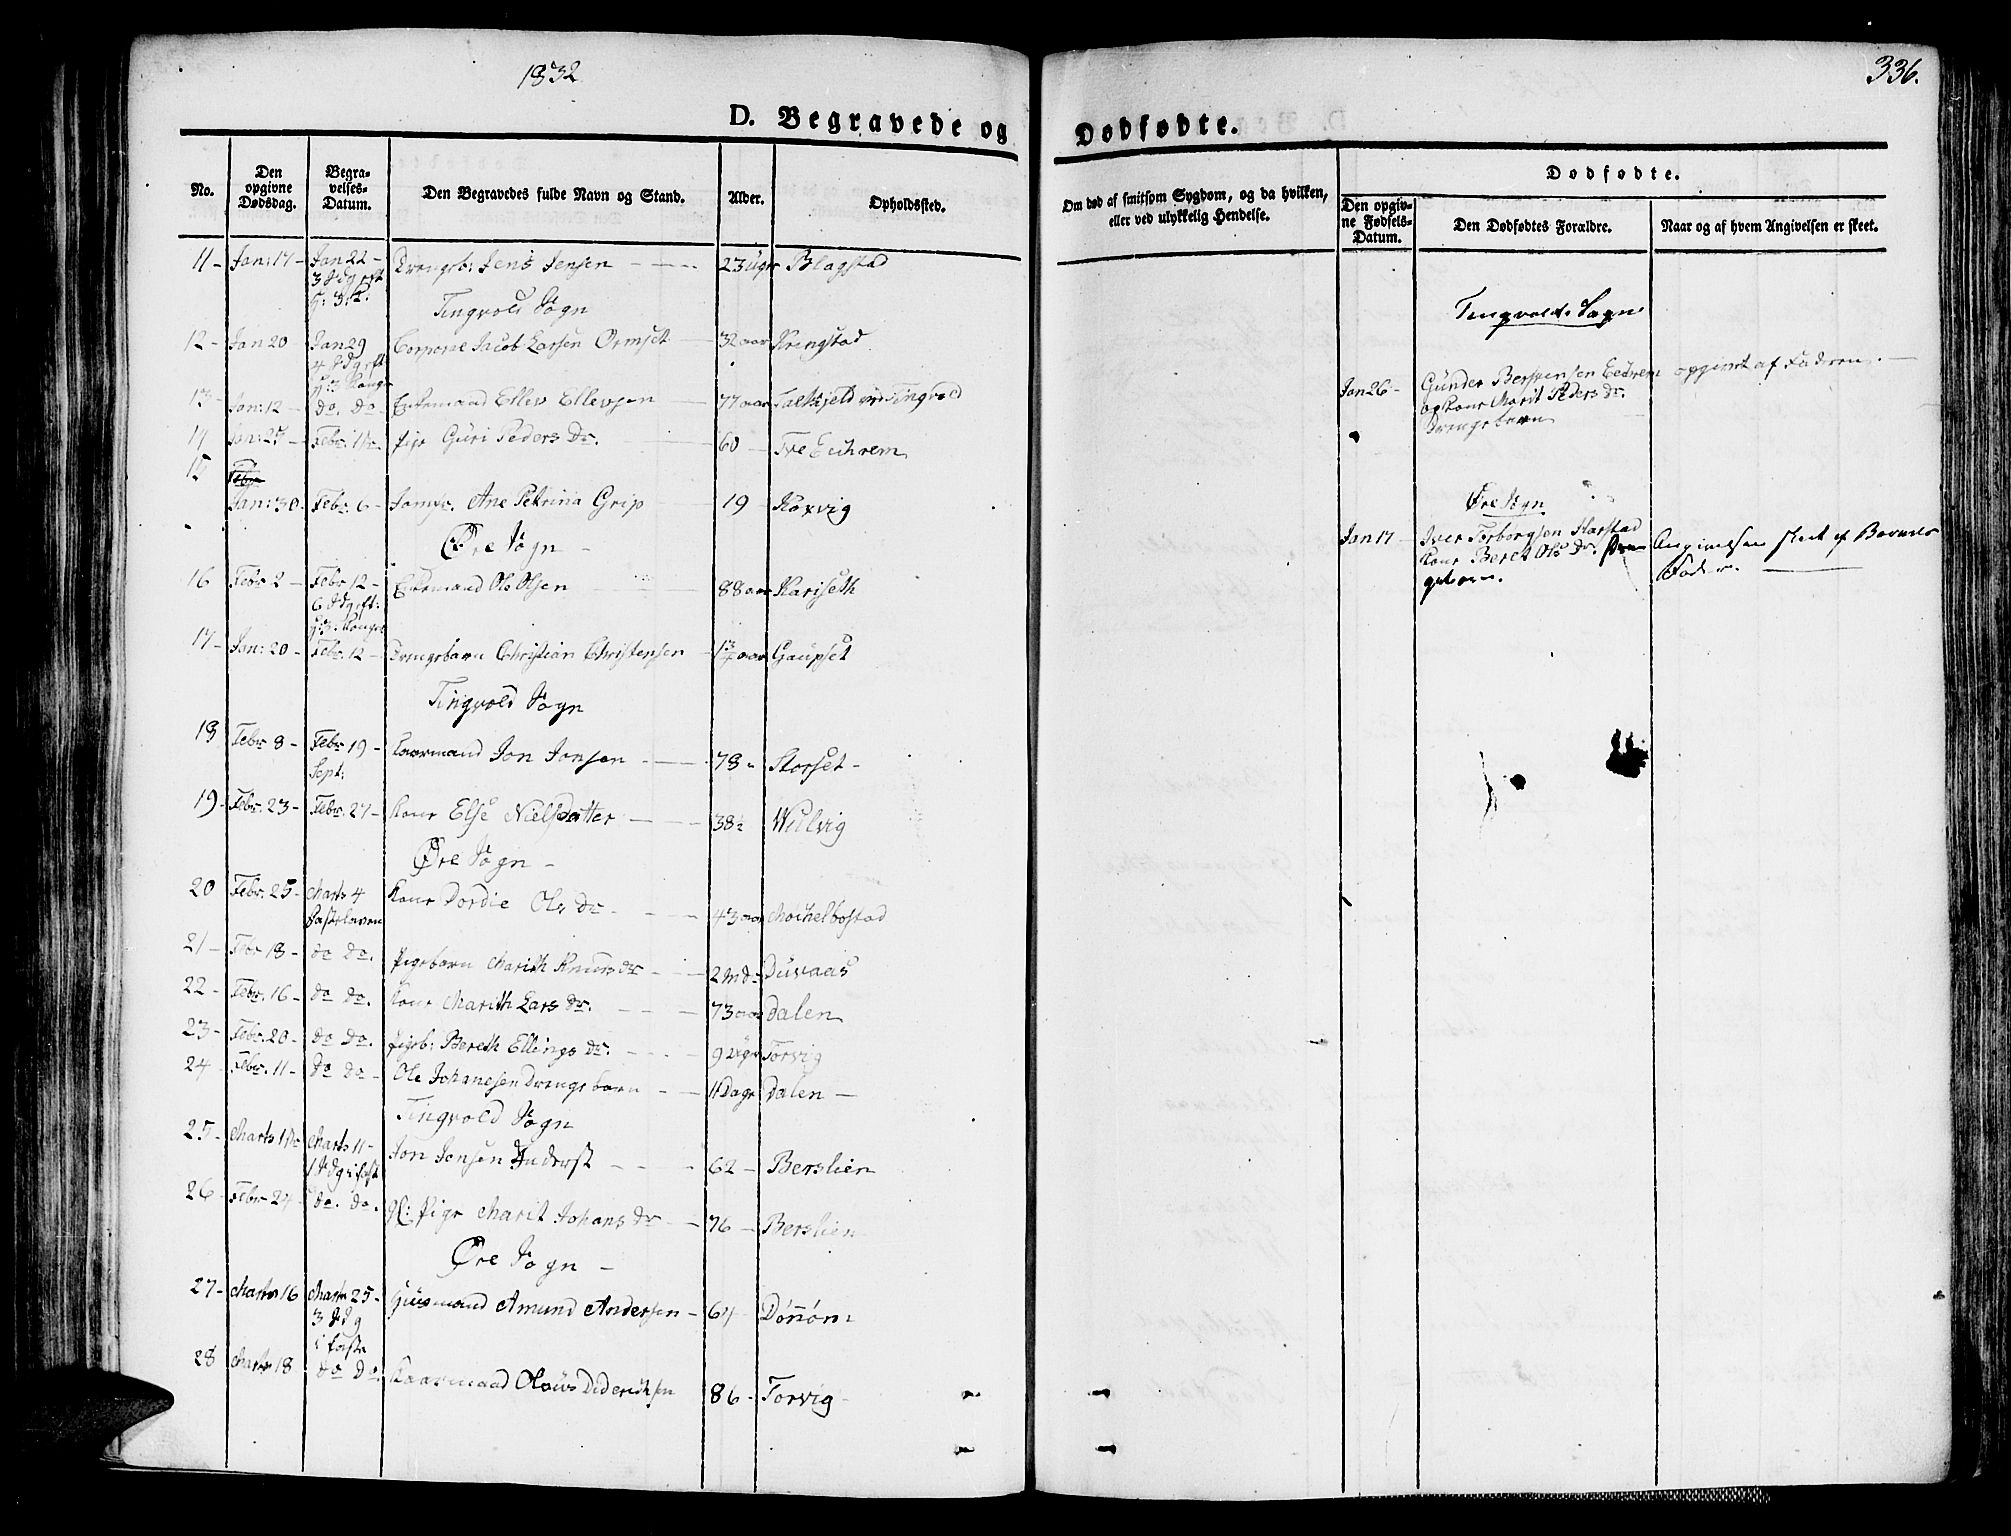 1832
336.
D. Begravede og
Dødfødte.
No.
Den opgivne Dødsdag.
Begravelses-Datum.
Den Begravedes fulde Navn og Stand.
Alder.
Opholdssted.
Om død af smitsom Sygdom, og da hvilken,
eller ved ulykkelig Hendelse.
Dødfødte.
Den opgivne Fødsels-Datum.
Den Dødfødtes Forældre.
Naar og af hvem Angivelsen er skeet.
11 - Jan: 17 - Jan 22 - Drengeb: Jens Jensen 23 Uger Blagstad
Tingvold Sogn
12 - Jan 20 Jan 29 Corporal Jacob Larsen Ormset 32 aar Kringstad
13 - Jan: 12 - do. do - Enkemand Ellev Ellevsen 77 aar
14 Jan: 27 - Pige Guri Peders Dr. 60 -
15
Jan: 30 Febr. 6 - Ane Petrina Grip 19 Koxvig
Øre Sogn -
16 Febr 2 - Febr 12 - Enkemand Ole Olsen 88 aar Kariseth
17 - Jan: 20 - Febr. 12 - Drengebarn Christian Christensen Gaupset
Tingvold Sogn
18 Febr 8 - Febr 19 - Jon Jonsen 78 - Storset -
Sept:
19 - Febr. 23 - Febr. 27 - Kone Else Nielsdatter 38 Wulvig
Øre Sogn -
20 Febr. 25 - Marts 4 Kone Dordie Ols Dr 43 aar
Fastelaven
21 - Febr 18 - do do. Pigebarn Marith Knuts dr 2 Md Duvaas
22 - Febr. 16 - do do. Kone Marith Lars Dr. 73 aar Dalen
23 - Febr. 20 - do do. Pigeb: Bereth Ellings Dr. 9 Uger Torvig
24 - Febr. 11 - do do - Ole Johanesen Drengebarn 11 Dage Dalen -
Tingvold Sogn
25 - Marts Marts 11 - Jon Jensen 62 - Berslien
26 - Febr 24 - do. do. Pige Marit Johans Dr 76 - Berslien
Øre Sogn -
27 - Marts 16 Marts 25 - Huusmand Amund Andersen - 64 -
28 Marts 18 do do. Olaus Dideriksen 86 - Torvig -
Tingvold Sogn
Jan 26 - Gunder
og Kone Marit Peders Dr.
Drengebarn
opgivet af Faderen. -
Øre Sogn
Jan 17 - Iver Torborgsen Harstad
Kone Beret Ols Dr.
Angivelsen skeet af Barnets
Fader.